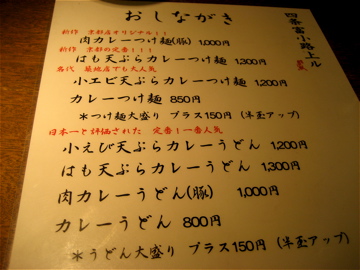 おしながき
四条富小路上ル
新作 京都店オリジナル！！
肉カレーつけ麺(豚) 1,000円
新作 京都の定番！！！
はも天ぷらカレーつけ麺 1,300円
名代 築地店でも大人気
小エビ天ぷらカレーつけ麺 1,200円
カレーつけ麺 850円
＊つけ麺大盛り プラス150円 (半玉アップ)
日本一と評価された 定番！一番人気
小えび天ぷらカレーうどん 1,200円
はも天ぷらカレーうどん 1,300円
肉カレーうどん(豚) 1,000円
カレーうどん 800円
＊うどん大盛り プラス150円 (半玉アップ)